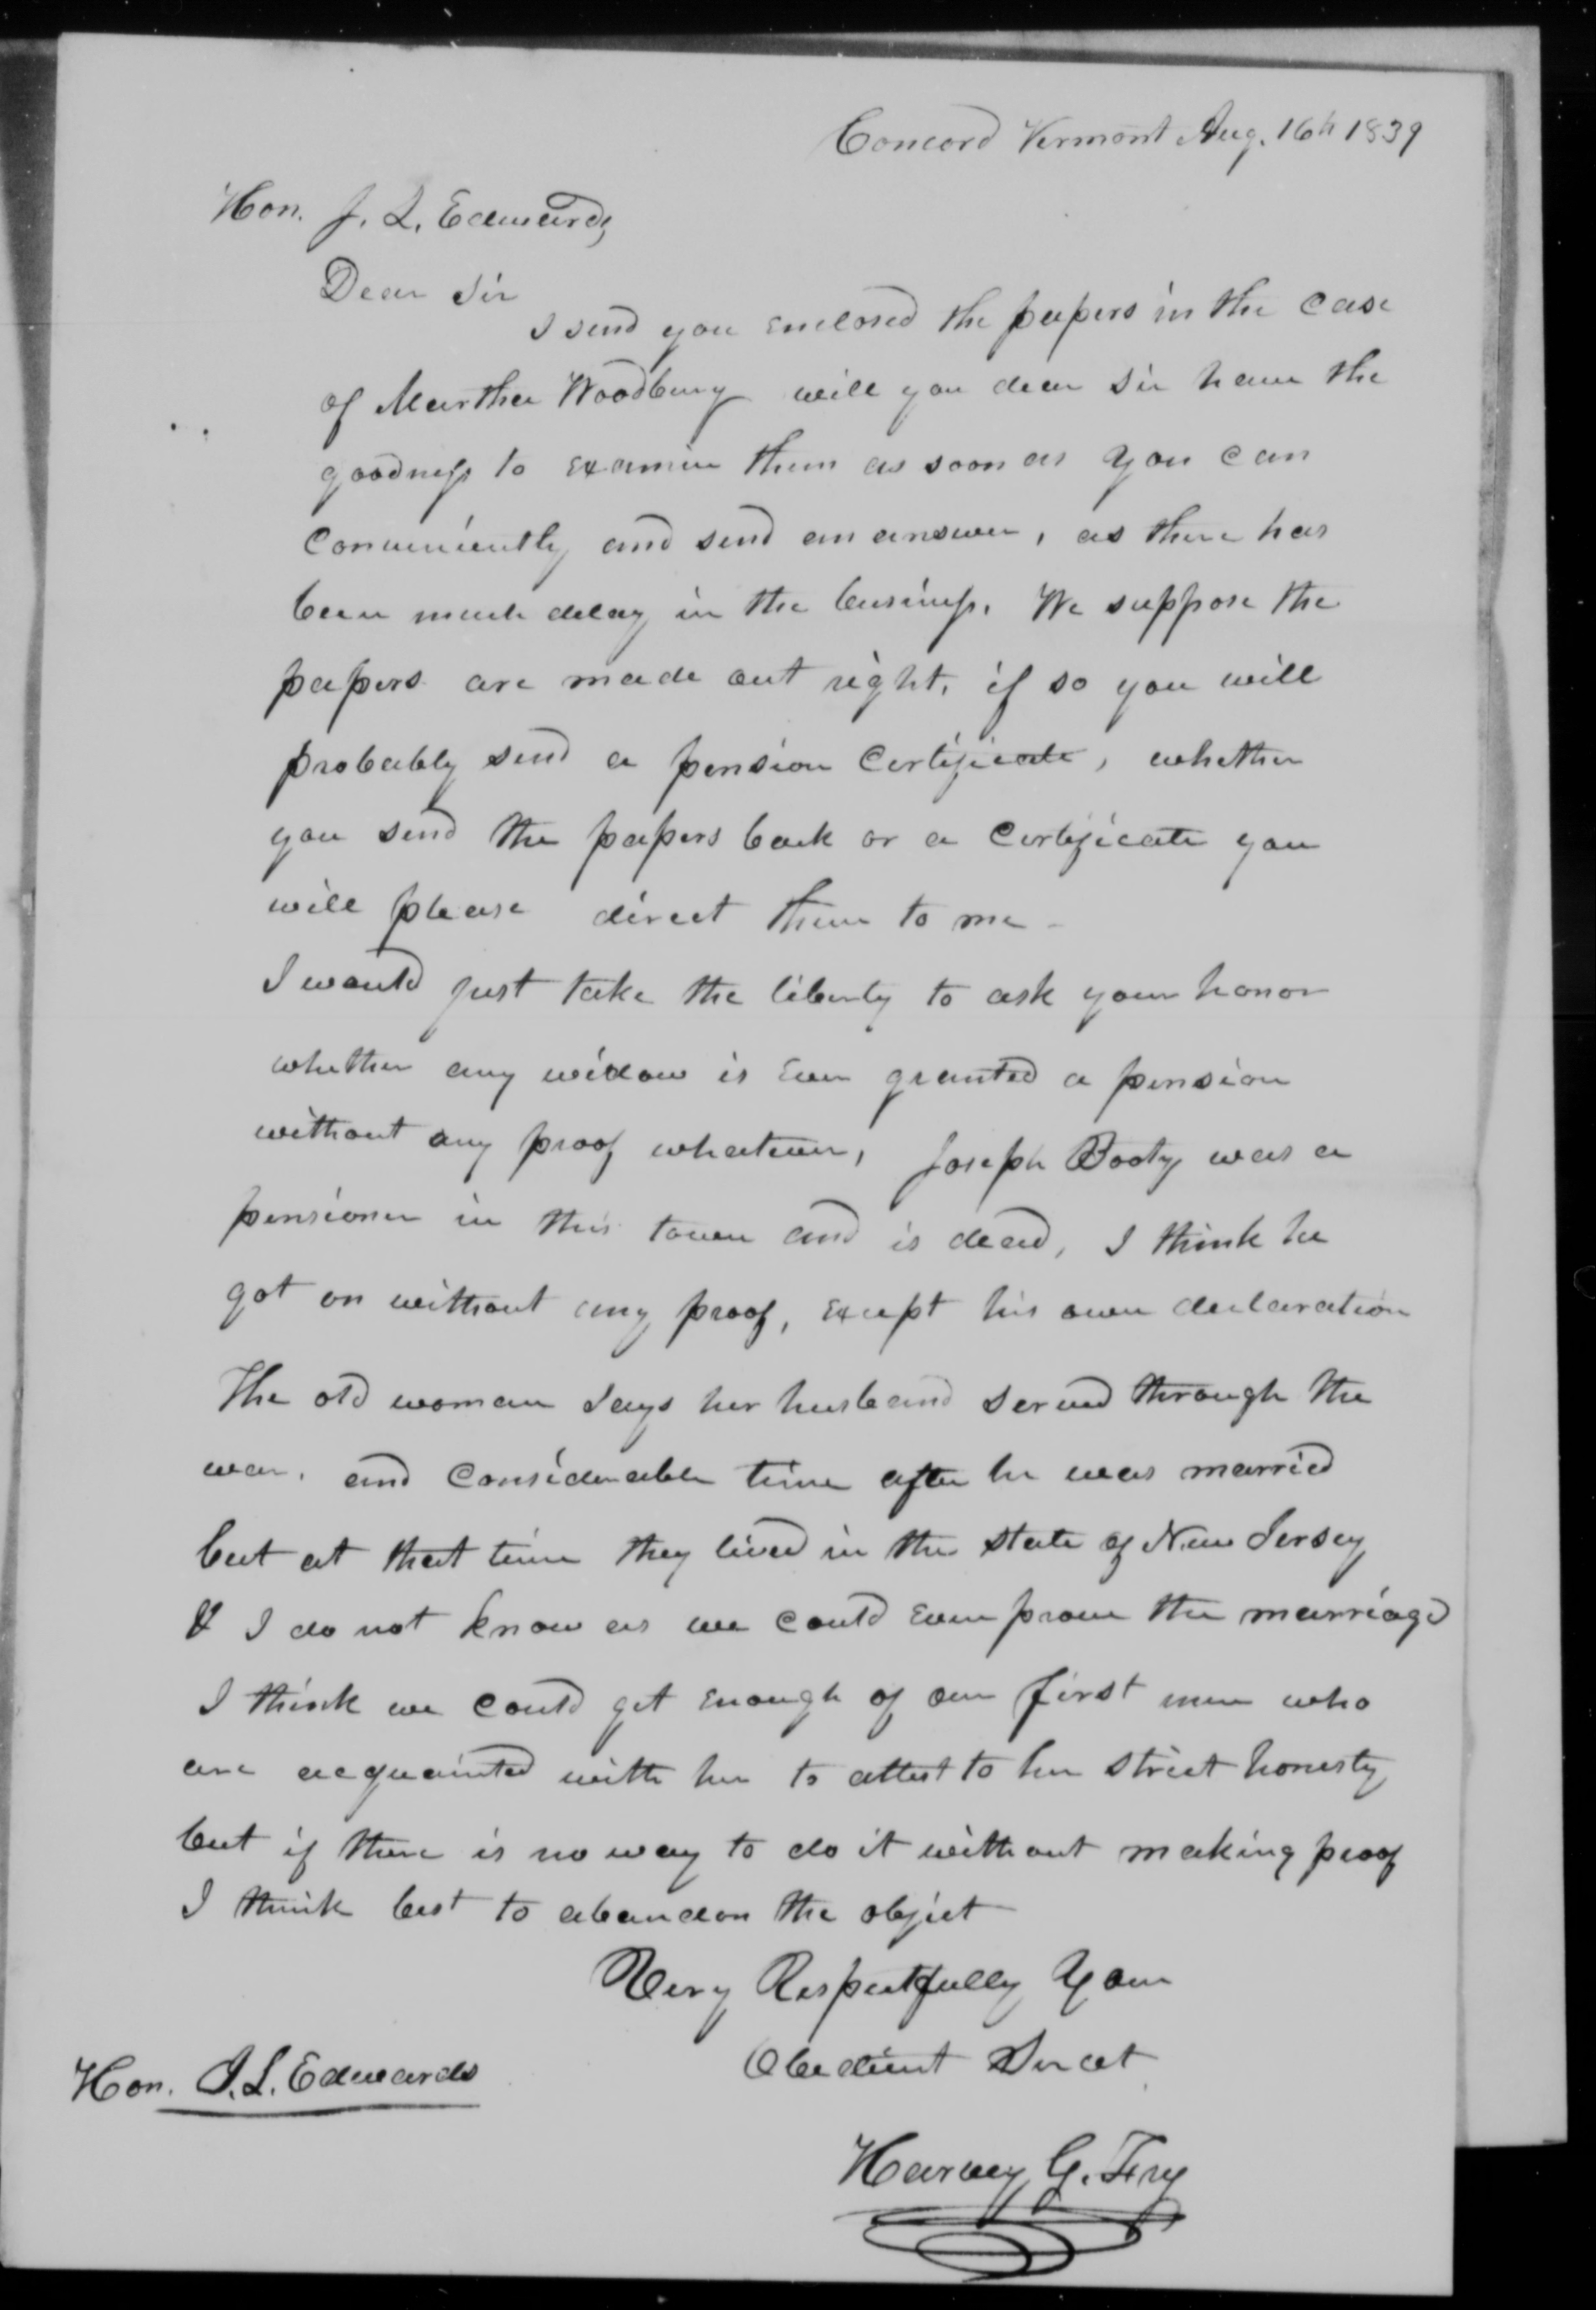 Concord Vermont Aug. 16th 1839
Hon. J. L. Edwards,
Dear Sir
I send you enclosed the papers in the case
of Martha Woodbury will you dear Sir have the
goodness to examine them as soon as you can
conveniently and send an answer, as there has
been much delay in the business. We suppose the
papers are made out right, if so you will
probably send a pension Certificate, whether
you send the papers back or a Certificate you
will please direct them to me -
I would just take the liberty to ask your honor
whether any widow is ever granted a pension
without any proof whatever, Joseph Booty was a
pensioner in this town and is dead, I think he
got on without any proof, except his own declaration
The old woman says her husband served through the
war, and considerable time after he was married
but at that time they lived in the state of New Jersey
& I do not know as we could even prove the marriage
I think we could get enough of our first men who
are acquainted with her to attest to her strict honesty
but if there is no way to do it without making proof
I think best to abandon the object
Very Respectfully Your
Obedient Servt
Hon. J. L. Edwards
Harvey G. Fry